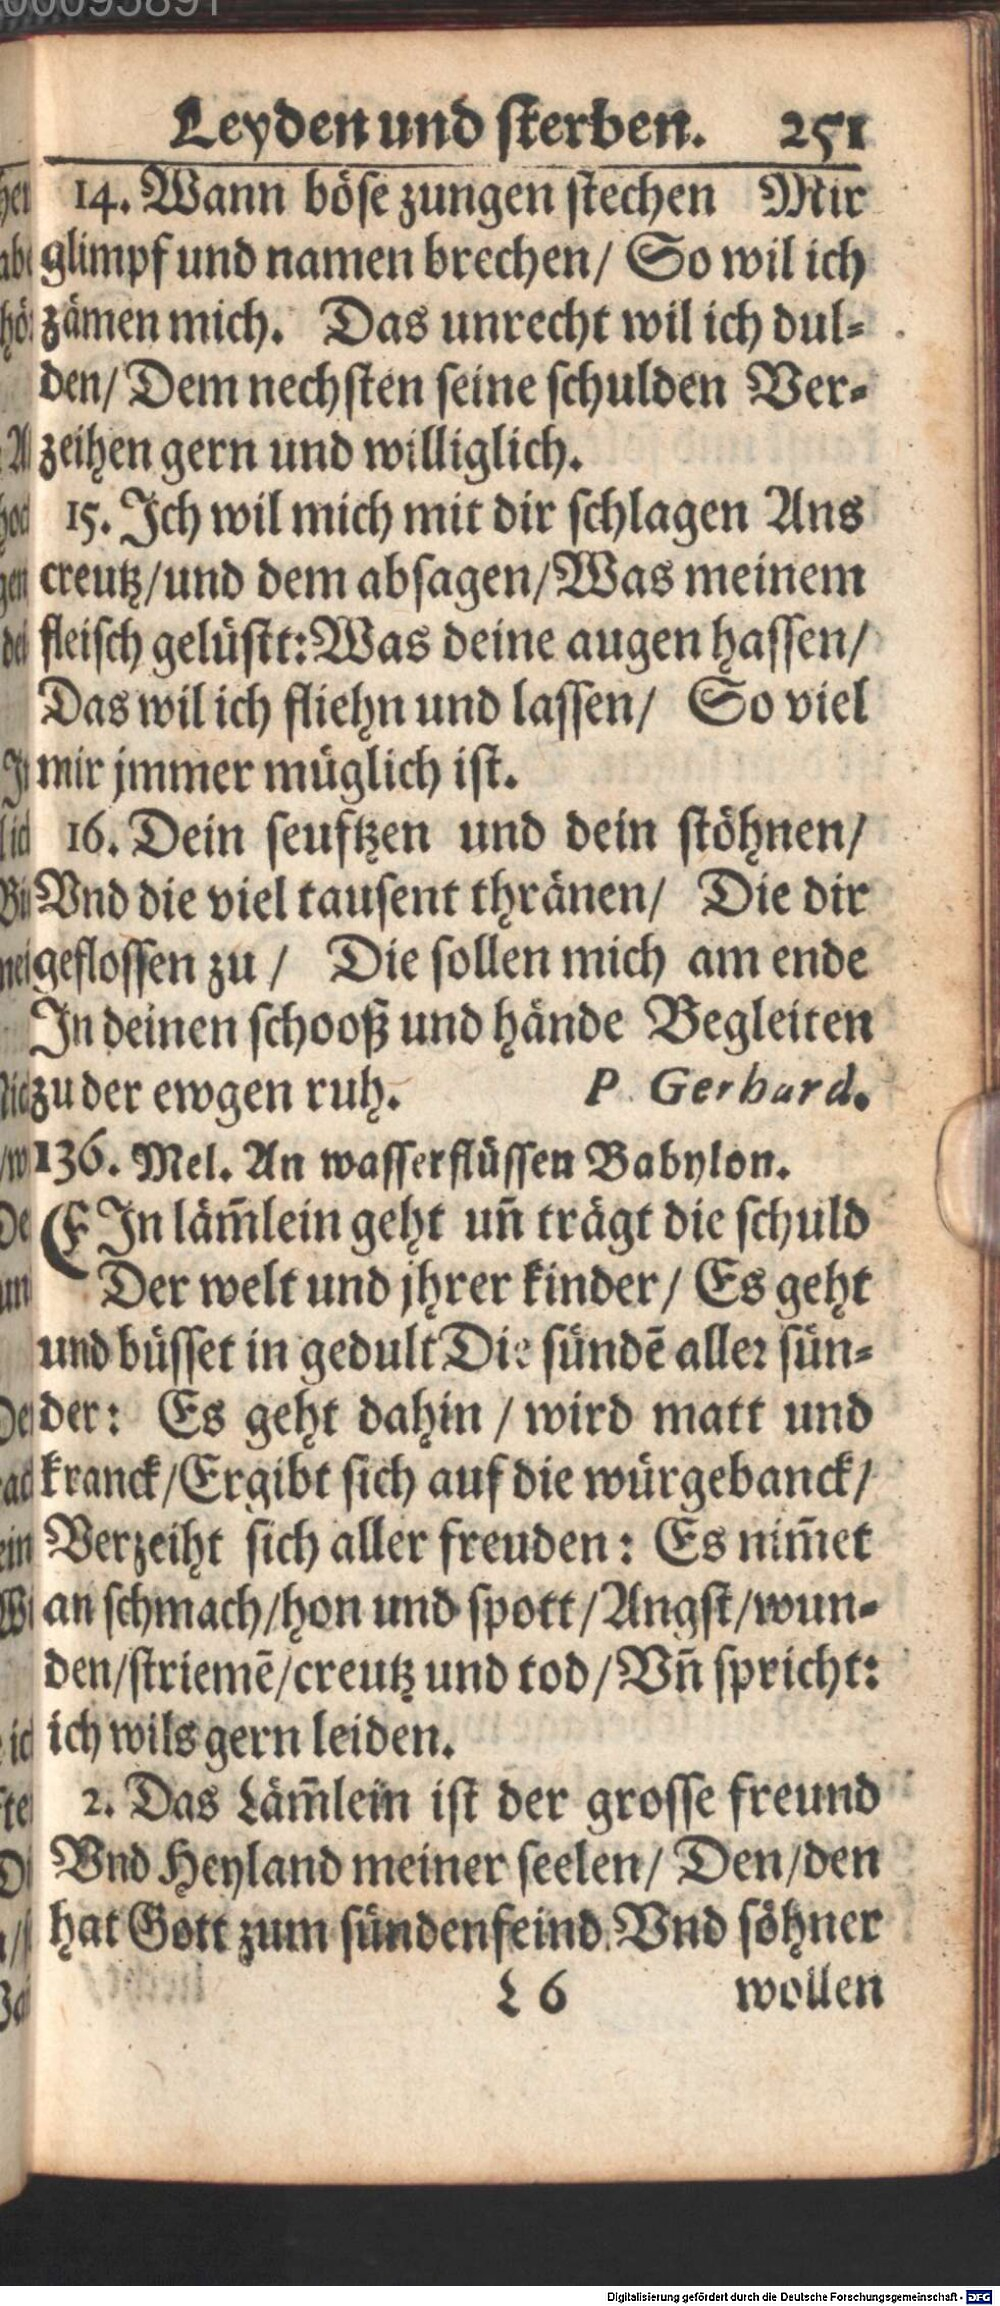 Leyden und sterben. 251
14. Wann böse zungen stechen Mir
glimpf und namen brechen/ So wil ich
zämen mich. Das unrecht wil ich dul-
den/ Dem nechsten seine schulden Ver-
zeihen gern und williglich.
15. Ich wil mich mit dir schlagen Ans
creutz/und dem absagen/Was meinem
fleisch gelüstt: Was deine augen hassen/
Das wil ich fliehn und lassen/ So viel
mir jmmer müglich ist.
16. Dein seuftzen und dein stöhnen/
Vnd die viel tausent thränen/ Die dir
geflossen zu / Die sollen mich am ende
In deinen schooß und hände Begleiten
zu der ewgen ruh. P. Gerhard.
136. Mel. An wasserflüssen Babylon.
EIn läm̃lein geht uñ trägt die schuld
Der welt und jhrer kinder/ Es geht
und büsset in gedult Die sündẽ aller sün-
der: Es geht dahin / wird matt und
kranck/Ergibt sich auf die würgebanck/
Verzeiht sich aller freuden: Es nim̃et
an schmach/hon und spott/Angst/wun-
den/striemẽ/creutz und tod/Vñ spricht:
ich wils gern leiden.
2. Das Läm̃lein ist der grosse freund
Vnd Heyland meiner seelen/ Den/den
hat Gott zum sündenfeind Vnd söhner
L 6 wollen
Digitalisierung gefördert durch die Deutsche Forschungsgemeinschaft - DFG